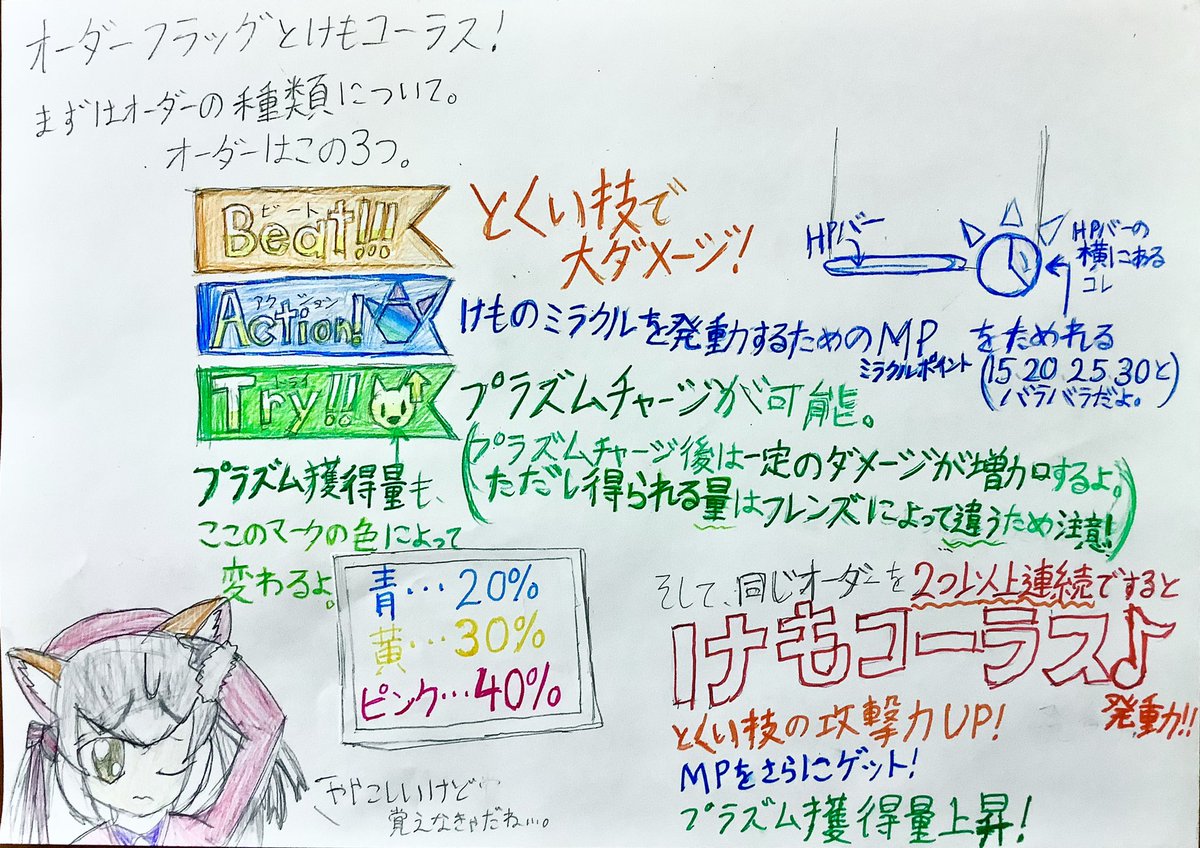 オーダーフラッグとけもコーラス!
まずはオーダーの種類について。
オーダーはこの3つ。
ビート
Beat!!!
とくい技で
大ダメージ!
アクション
Action!
けものミラクルを発動するためのMPをためれる
ミラクルポイント
(15 20 25 30と
バラバラだよ。)
HPバー
HPバーの
横にある
コレ
トライ
Try!!
プラズムチャージが可能。
(プラズムチャージ後は一定のダメージが増加するよ。
ただし得られる量はフレンズによって違うため注意!)
プラズム獲得量も、
ここのマークの色によって
変わるよ。
青…20%
黄…30%
ピンク…40%
そして、同じオーダーを2つ以上連続ですると
けもコーラス♪
発動!!
とくい技の攻撃力UP!
MPをさらにゲット!
プラズム獲得量上昇!
ややこしいけど
覚えなきゃだね…。